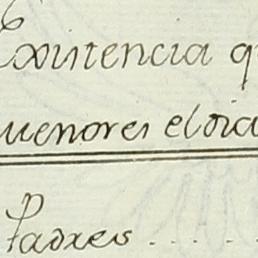 Existencia q
uenores el dia
Padres . . . .